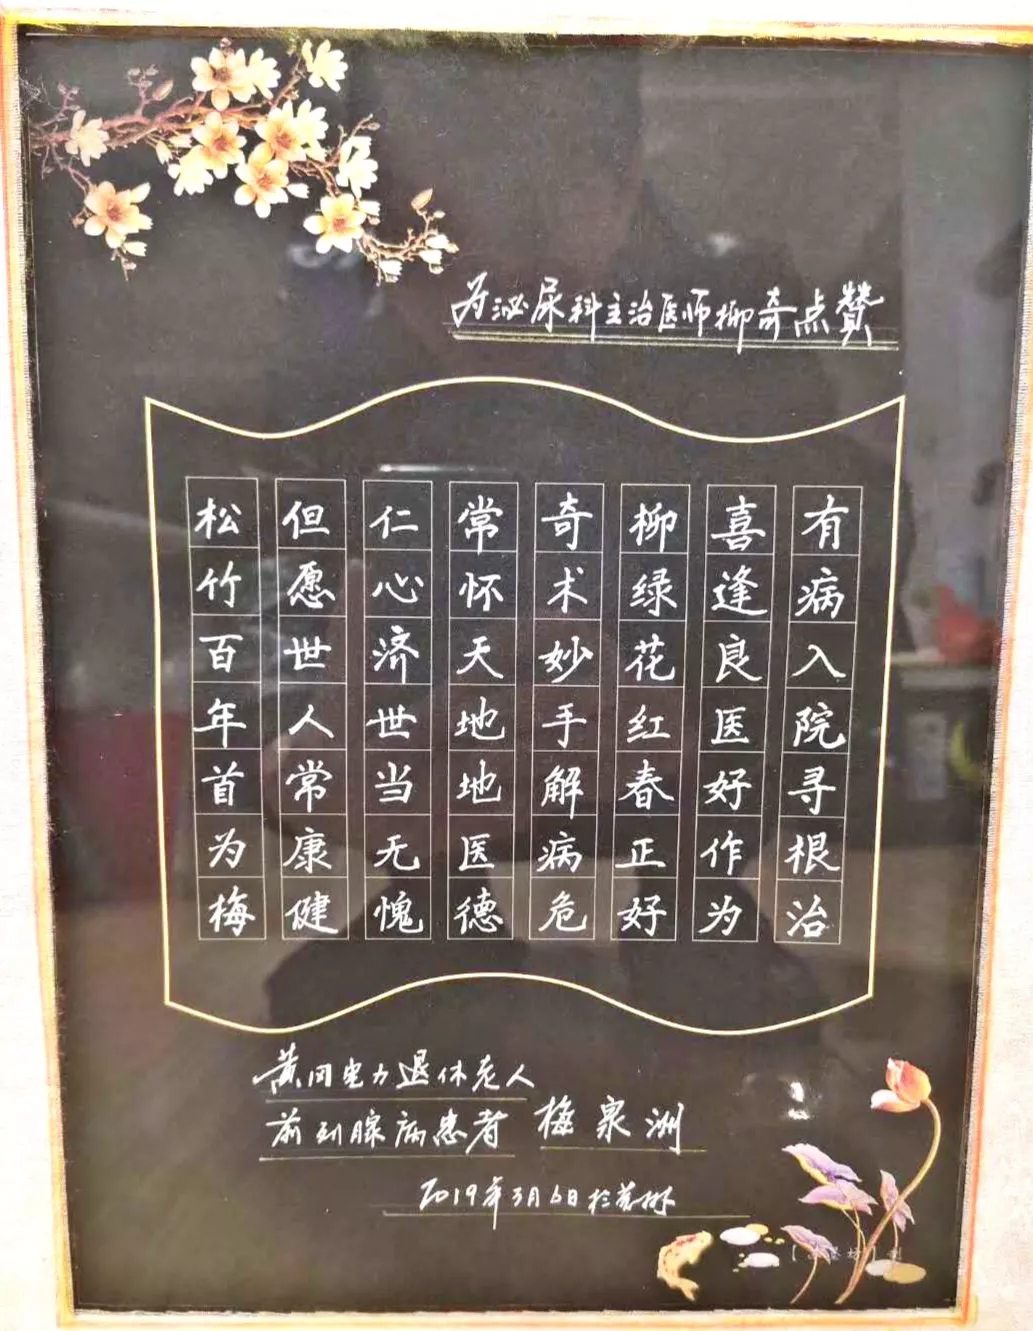 为泌尿科主治医师柳奇点赞
有病入院寻根治
喜逢良医好作为
柳绿花红春正好
奇术妙手解病危
常怀天地地医德
仁心济世当无愧
但愿世人常康健
松竹百年首为梅
黄冈电力退休老人
前列腺病患者 梅泉洲
2019年3月6日于